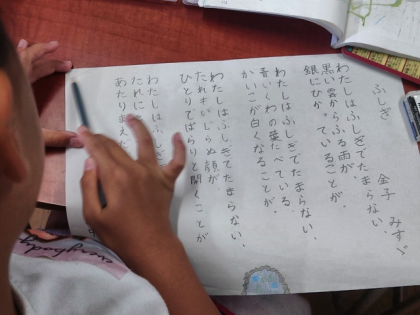 ふしぎ
金子 みすゞ
わたしはふしぎでたまらない、
黒い雲からふる雨が、
銀にひかっていることが。
わたしはふしぎでたまらない、
青いくわの葉たべている、
かいこが白くなることが。
わたしはふしぎでたまらない、
たれもいじらぬ顔が
ひとりでぱらりと開くことが
わたしはふしぎ
たれに
あたりまえだ